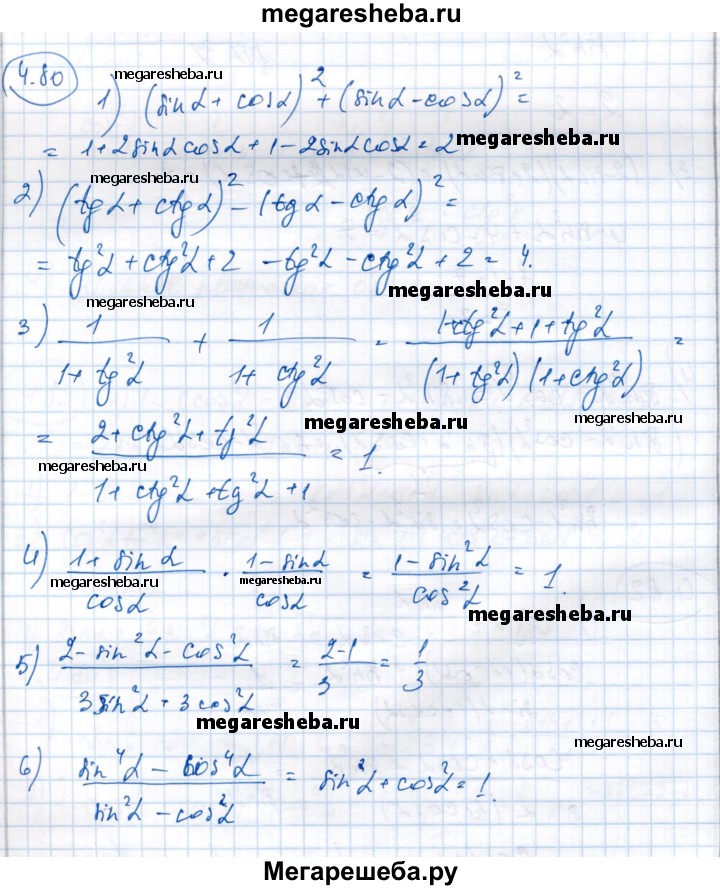 megaresheba.ru
4.80
megaresheba.ru
1) (sinα + cosα)² + (sinα - cosα)² =
= 1+2sinα cosα + 1 - 2sinα cosα = 2
megaresheba.ru
megaresheba.ru
2) (tgα + ctgα)² - (tgα - ctgα)² =
= tg²α + ctg²α + 2 - tg²α - ctg²α + 2 = 4.
megaresheba.ru
megaresheba.ru
3) 1/(1+tg²α) + 1/(1+ctg²α) = (1+ctg²α+1+tg²α)/((1+tg²α)(1+ctg²α)) =
megaresheba.ru
megaresheba.ru
= (2+ctg²α+tg²α)/(1+ctg²α+tg²α+1) = 1.
megaresheba.ru
4) (1+sinα)/cosα · (1-sinα)/cosα = (1-sin²α)/cos²α = 1.
megaresheba.ru
megaresheba.ru
megaresheba.ru
5) (2-sin²α-cos²α)/(3sin²α+3cos²α) = (2-1)/3 = 1/3
megaresheba.ru
megaresheba.ru
6) (sin⁴α - cos⁴α)/(sin²α - cos²α) = sin²α + cos² = 1.
Мегарешеба.ру